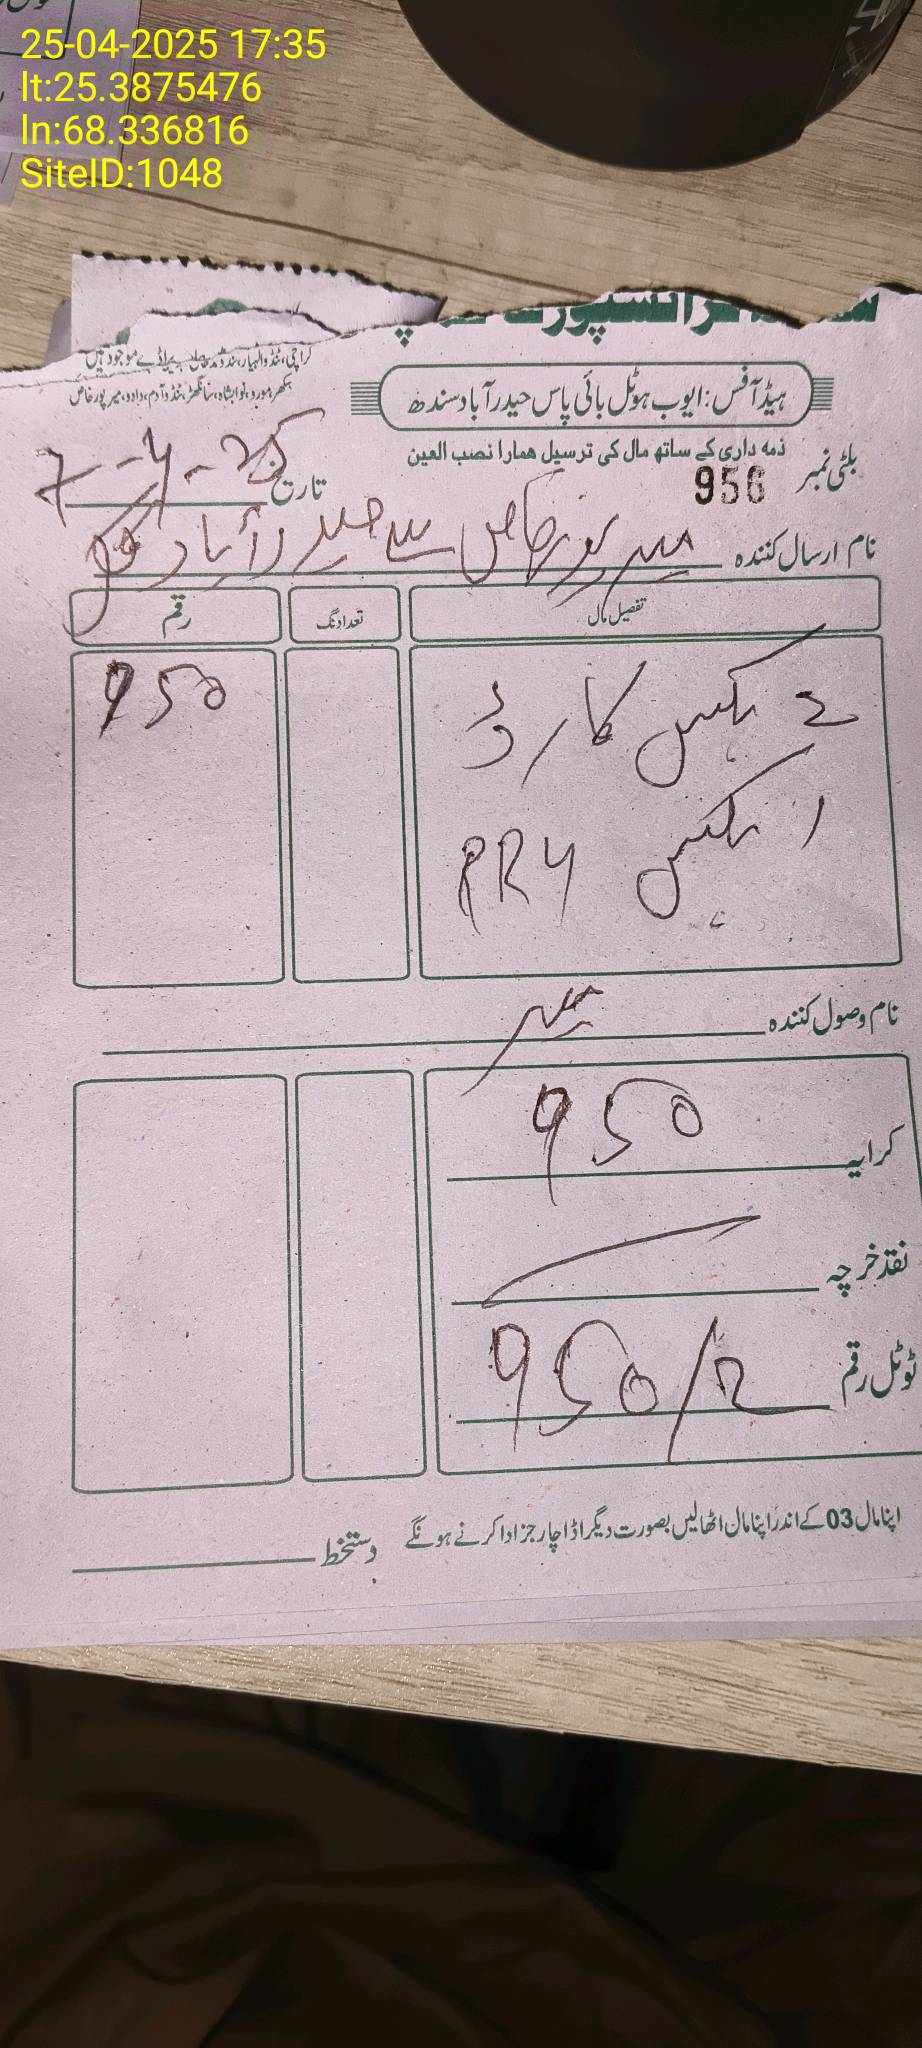 25-04-2025 17:35
lt:25.3875476
ln:68.336816
SiteID:1048
ہیڈ آفس: ایوب ہوٹل بائی پاس حیدرآباد سندھ
سکھر، مورو، نوابشاہ، سانگھڑ، ٹنڈوآدم، دادو، میرپورخاص
ذمه داری کے ساتھ مال کی ترسیل همارا نصب العین
بلٹی نمبر 956
تاریخ 7-4-25
نام ارسال کنندہ میرپورخاص سے حیدرآباد
تفصیل مال تعداد نگ رقم
2 بکس کارڈ 950
1 بکس PR4
نام وصول کنندہ
کرایہ 950
نقد خرچہ
ٹوٹل رقم 950/
اپنا مال 03 کے اندر اپنا مال اٹھالیں بصورت دیگر اڈا چارجز ادا کرنے ہونگے
دستخط